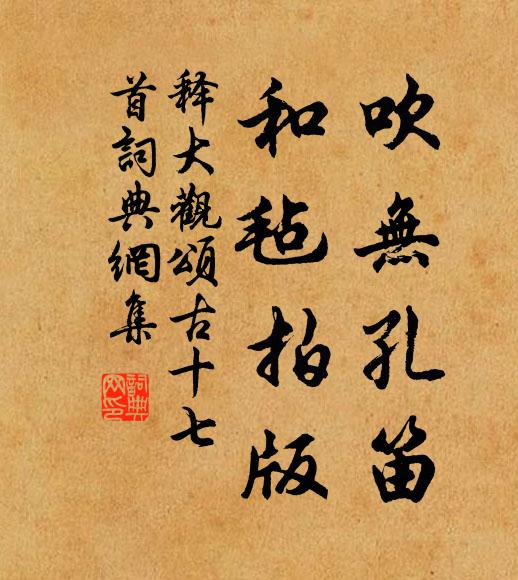 吹無孔笛
和毡拍版
释大觀頌古十七
首詞典網集
詞典網印